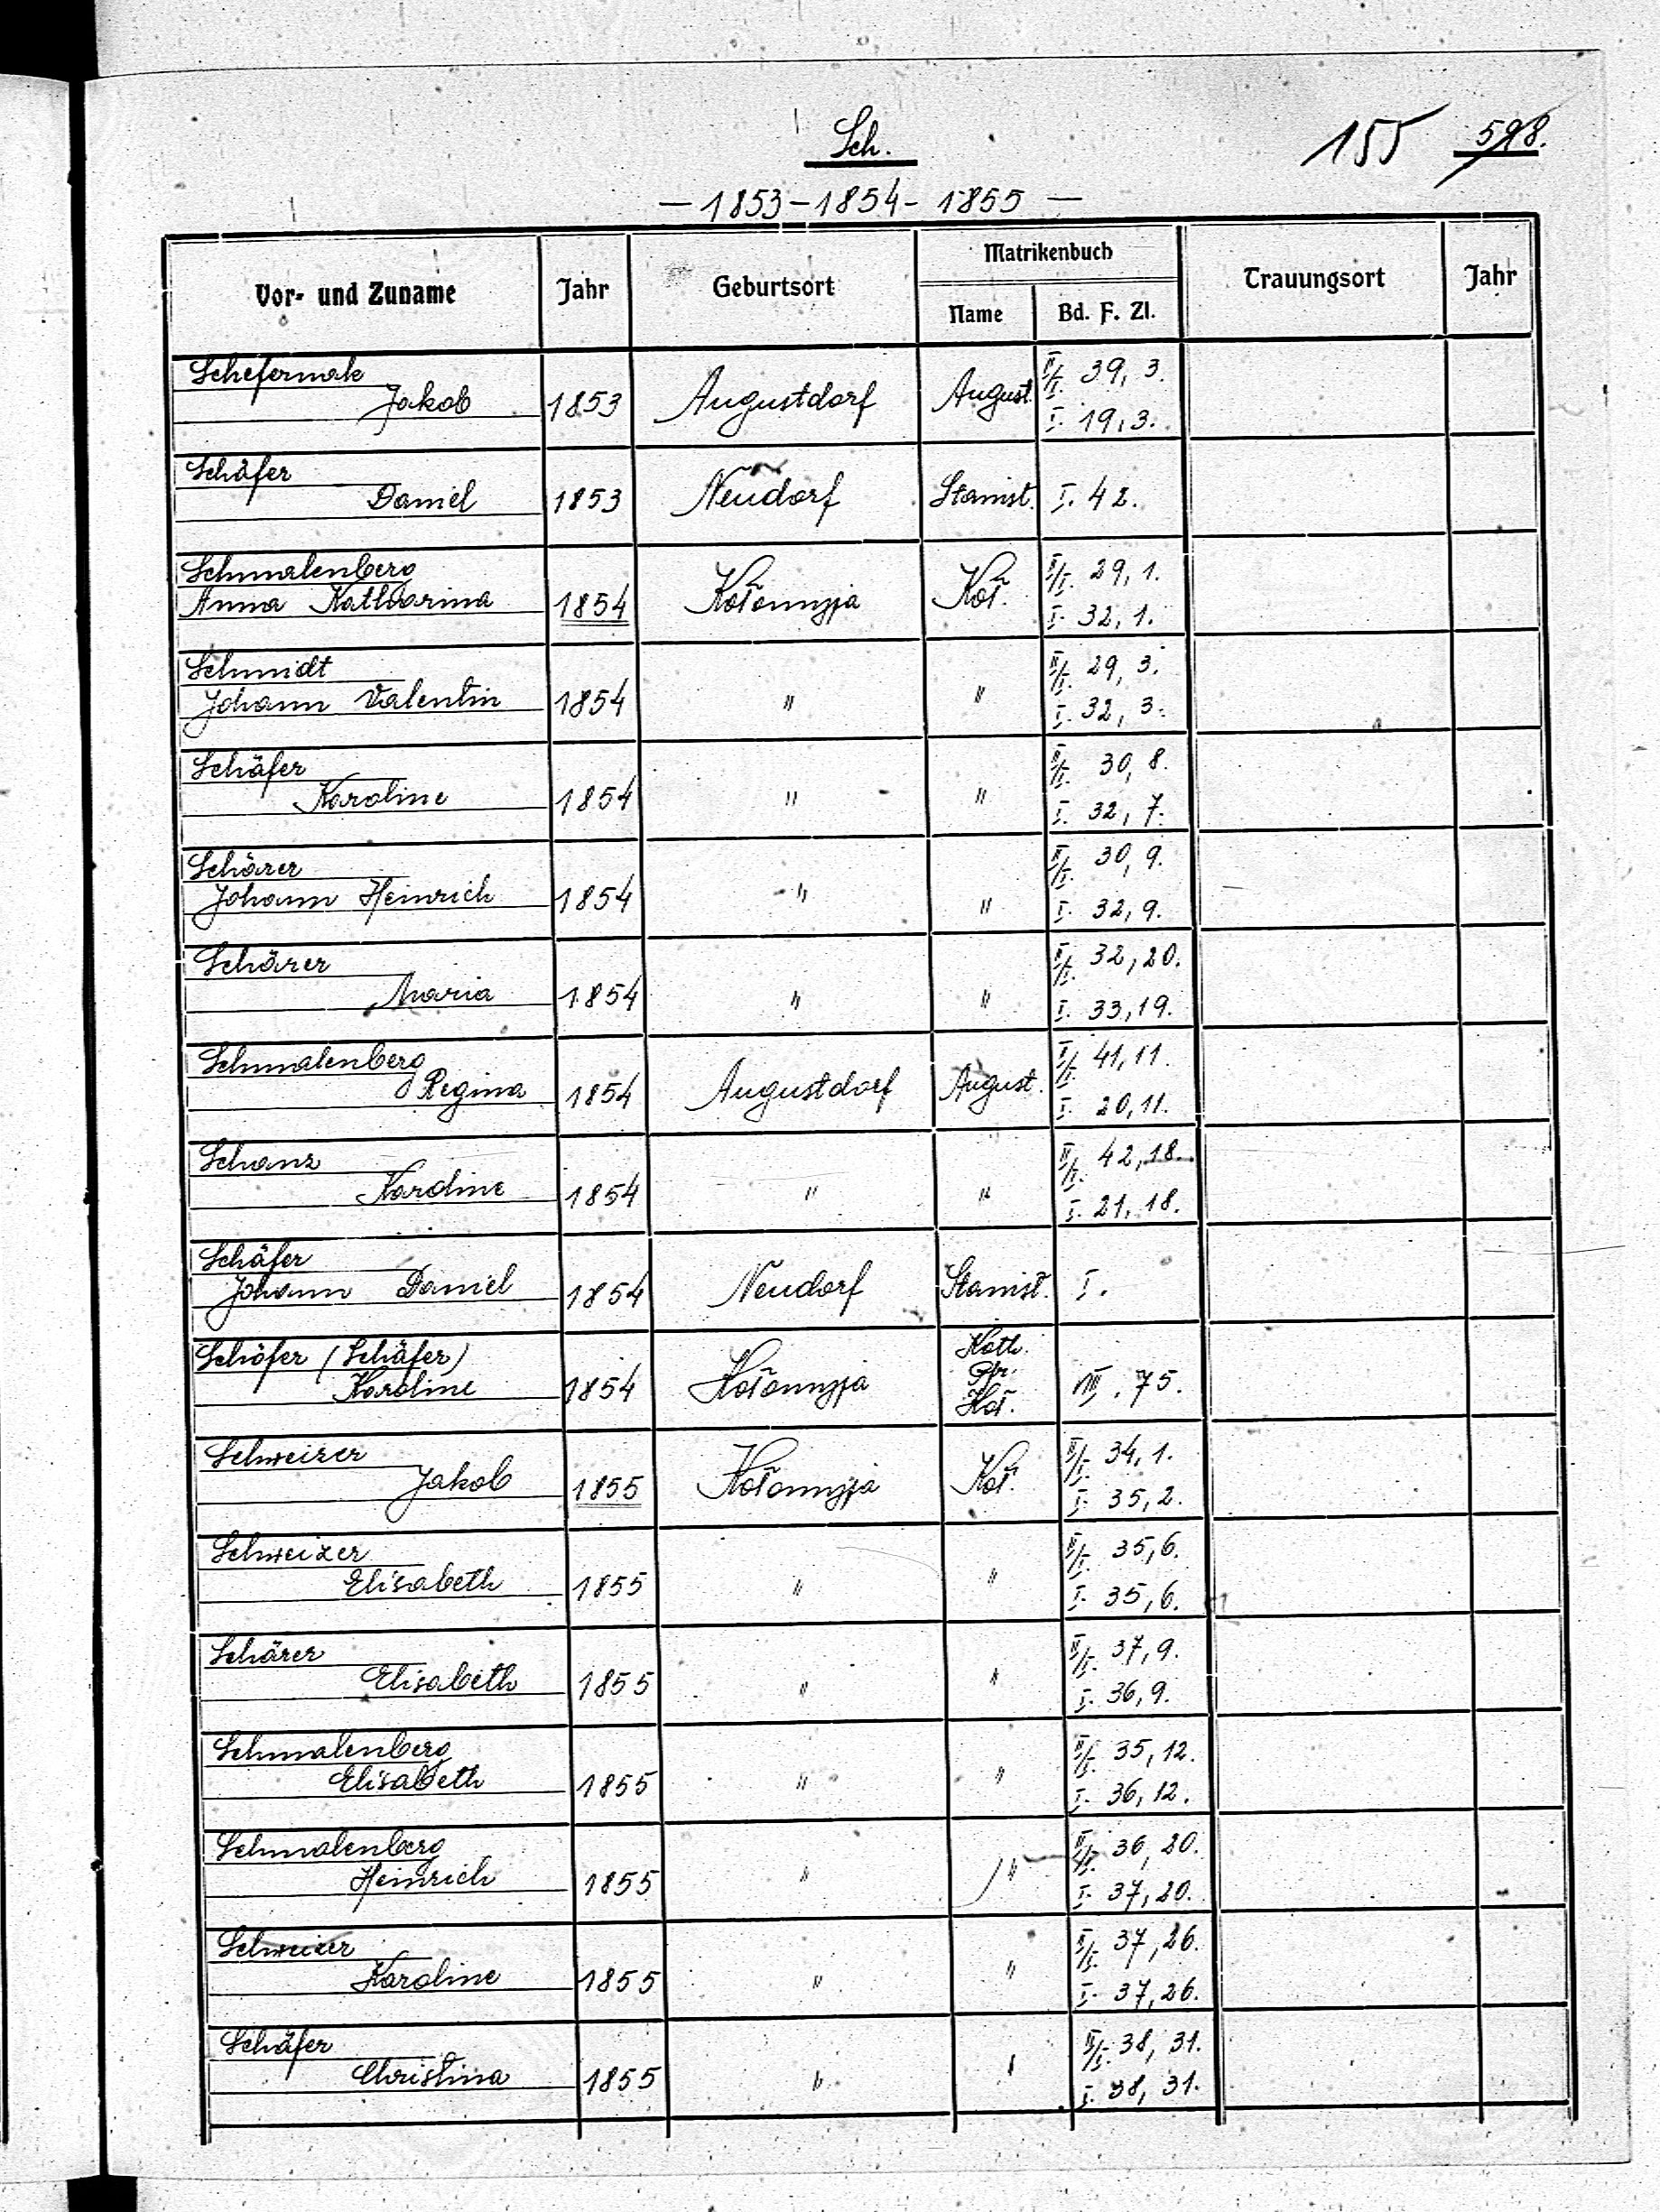 Sch.
155 598.
— 1853 – 1854 - 1855 —
Vor- und Zuname Jahr Geburtsort Matrikenbuch Trauungsort Jahr
Name Bd. F. Zl.
Schefermak II/I. 39, 3.
Jakob 1853 Augustdorf August. I. 19, 3.
Schäfer
Daniel 1853 Neudorf Stanisł. I. 42.
Schmalenberg II/I. 29, 1.
Anna Katharina 1854 Kołomyja Koł. I. 32, 1.
Schmidt II/I. 29, 3.
Johann Valentin 1854 " " I. 32, 3.
Schäfer II/I. 30, 8.
Karoline 1854 " " I. 32, 7.
Schärer II/I. 30, 9.
Johann Heinrich 1854 " " I. 32, 9.
Schärer II/I. 32, 20.
Maria 1854 " " I. 33, 19.
Schmalenberg II/I. 41, 11.
Regina 1854 Augustdorf August. I. 20, 11.
Schanz II/I. 42, 18.
Karoline 1854 " " I. 21, 18.
Schäfer
Johann Daniel 1854 Neudorf Stanisł. I.
Schöfer (Schäfer) Kath.
Karoline 1854 Kołomyja Pfr. VIII. 75.
Koł.
Schweizer II/I. 34, 1.
Jakob 1855 Kołomyja Koł. I. 35, 2.
Schweizer II/I. 35, 6.
Elisabeth 1855 " " I. 35, 6.
Schärer II/I. 37, 9.
Elisabeth 1855 " " I. 36, 9.
Schmalenberg II/I. 35, 12.
Elisabeth 1855 " " I. 36, 12.
Schmalenberg II/I. 36, 20.
Heinrich 1855 " " I. 37, 20.
Schweizer II/I. 37, 26.
Karoline 1855 " " I. 37, 26.
Schäfer II/I. 38, 31.
Christina 1855 " " I. 38, 31.